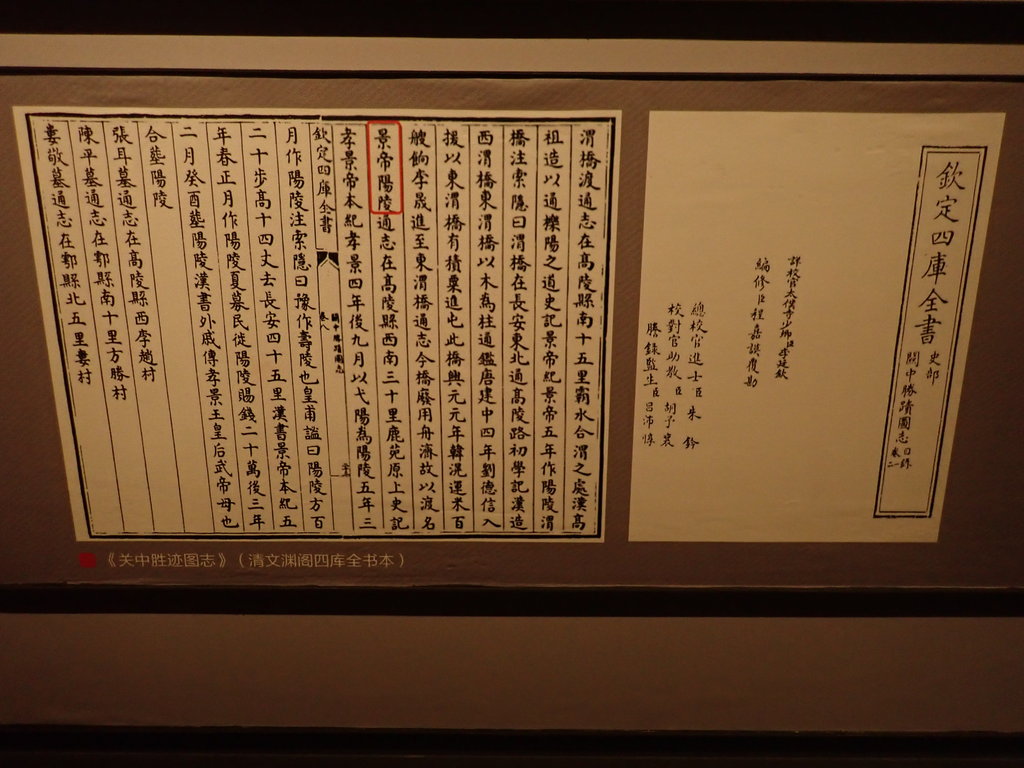 欽定四庫全書
史部
關中勝蹟圖志目錄
卷二
編修臣程嘉謨覆勘
總校官進士臣朱鈐
校對官助教臣胡予襄
謄錄監生臣呂沛惇
渭橋渡通志在高陵縣南十五里霸水合渭之處漢高
祖造以通櫟陽之道史記景帝紀景帝五年作陽陵渭
橋注索隱曰渭橋在長安東北通高陵路初學記漢造
西渭橋東渭橋以木為柱通鑑唐建中四年劉德信入
援以東渭橋有積粟進屯此橋興元元年韓滉運米百
艘餉李晟進至東渭橋通志今橋廢用舟濟故以渡名
景帝陽陵通志在高陵縣西南三十里鹿苑原上史記
孝景帝本紀孝景四年後九月以弋陽為陽陵五年三
欽定四庫全書
卷八
關中勝蹟圖志
月作陽陵注索隱曰豫作壽陵也皇甫謐曰陽陵方百
二十步高十四丈去長安四十五里漢書景帝本紀五
年春正月作陽陵夏募民徙陽陵賜錢二十萬後三年
二月癸酉葬陽陵漢書外戚傳孝景王皇后武帝母也
合葬陽陵
張耳墓通志在高陵縣西李趙村
陳平墓通志在鄠縣南十里方勝村
婁敬墓通志在鄠縣北五里婁村
《关中胜迹图志》(清文渊阁四库全书本)